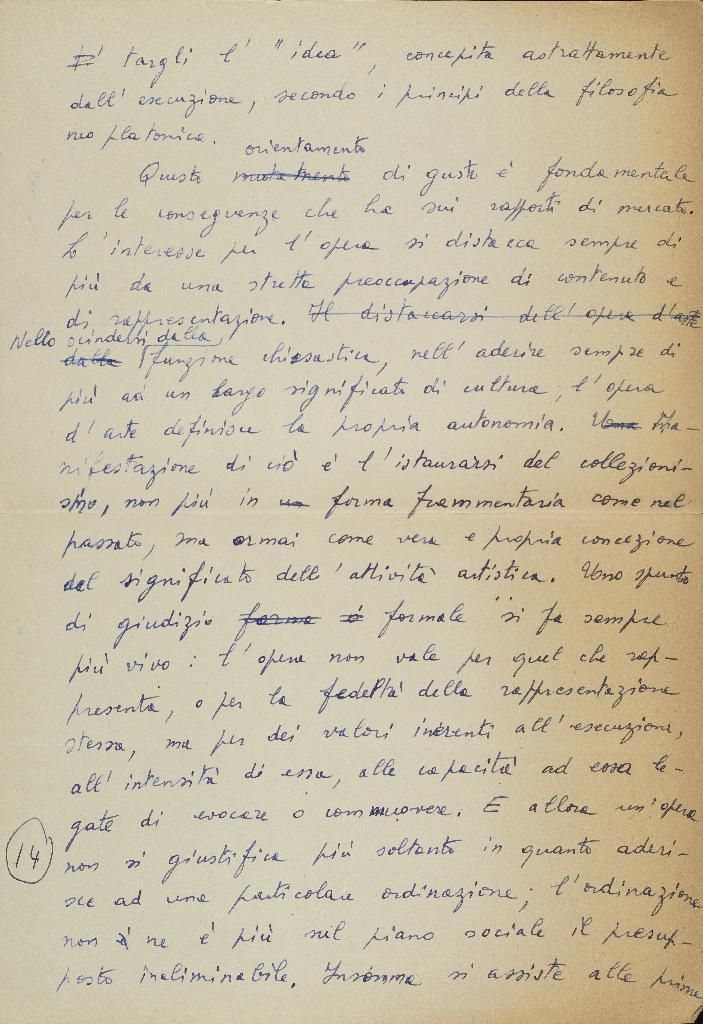 E' targli l' "idea", concepita astrattamente
dall' esecuzione, secondo i principi della filosofia
neo platonica.
orientamento
Questo mutamento di gusto è fondamentale
per le conseguenze che ha sui rapporti di mercato.
L'interesse per l'opera si distacca sempre di
più da una stretta preoccupazione di contenuto e
di rappresentazione. Il distaccarsi dell'opera d'arte
Nello scindersi dalla
dalla funzione chiesastica, nell'aderire sempre di
più ad un largo significato di cultura, l'opera
d'arte definisce la propria autonomia. Una Ma-
nifestazione di ciò è l'istaurarsi del collezioni-
smo, non più in un forma frammentaria come nel
passato, ma ormai come vera e propria concezione
del significato dell'attività artistica. Uno spunto
di giudizio forma è formale si fa sempre
più vivo: l'opera non vale per quel che rap-
presenta, o per la fedeltà della rappresentazione
stessa, ma per dei valori inerenti all'esecuzione,
all'intensità di essa, alle capacità ad essa le-
gate di evocare o commuovere. E allora un'opera
14
non si giustifica più soltanto in quanto aderi-
sce ad una particolare ordinazione; l'ordinazione
non è ne è più sul piano sociale il presup-
posto ineliminabile. Insomma si assiste alle prime